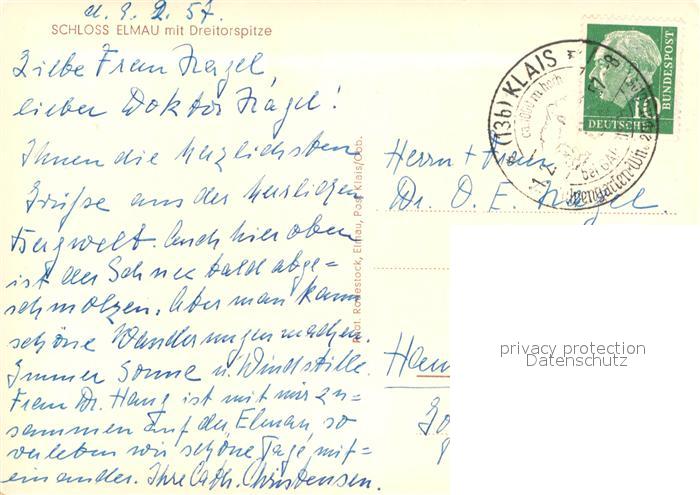 d. 9.2.57.
SCHLOSS ELMAU mit Dreitorspitze
Liebe Frau Nagel,
lieber Doktor Nagel!
Ihnen die herzlichsten
Grüße aus der herrlichen
Bergwelt. Auch hier oben
ist der Schnee bald abge=
schmolzen. Aber man kann
schöne Wanderungen machen.
Immer Sonne u. Windstille.
Frau Dr. Haug ist mit mir zu=
sammen auf der Elmau, so
verleben wir schöne Tage mit=
einander. Ihre Cath. Christensen.
Phot. Rometstock, Elmau, Post Klais/Obb.
(13b) KLAIS
10
DEUTSCHE
BUNDESPOST
Herrn + Frau
Dr. O. E. Nagel.
privacy protection
Datenschutz